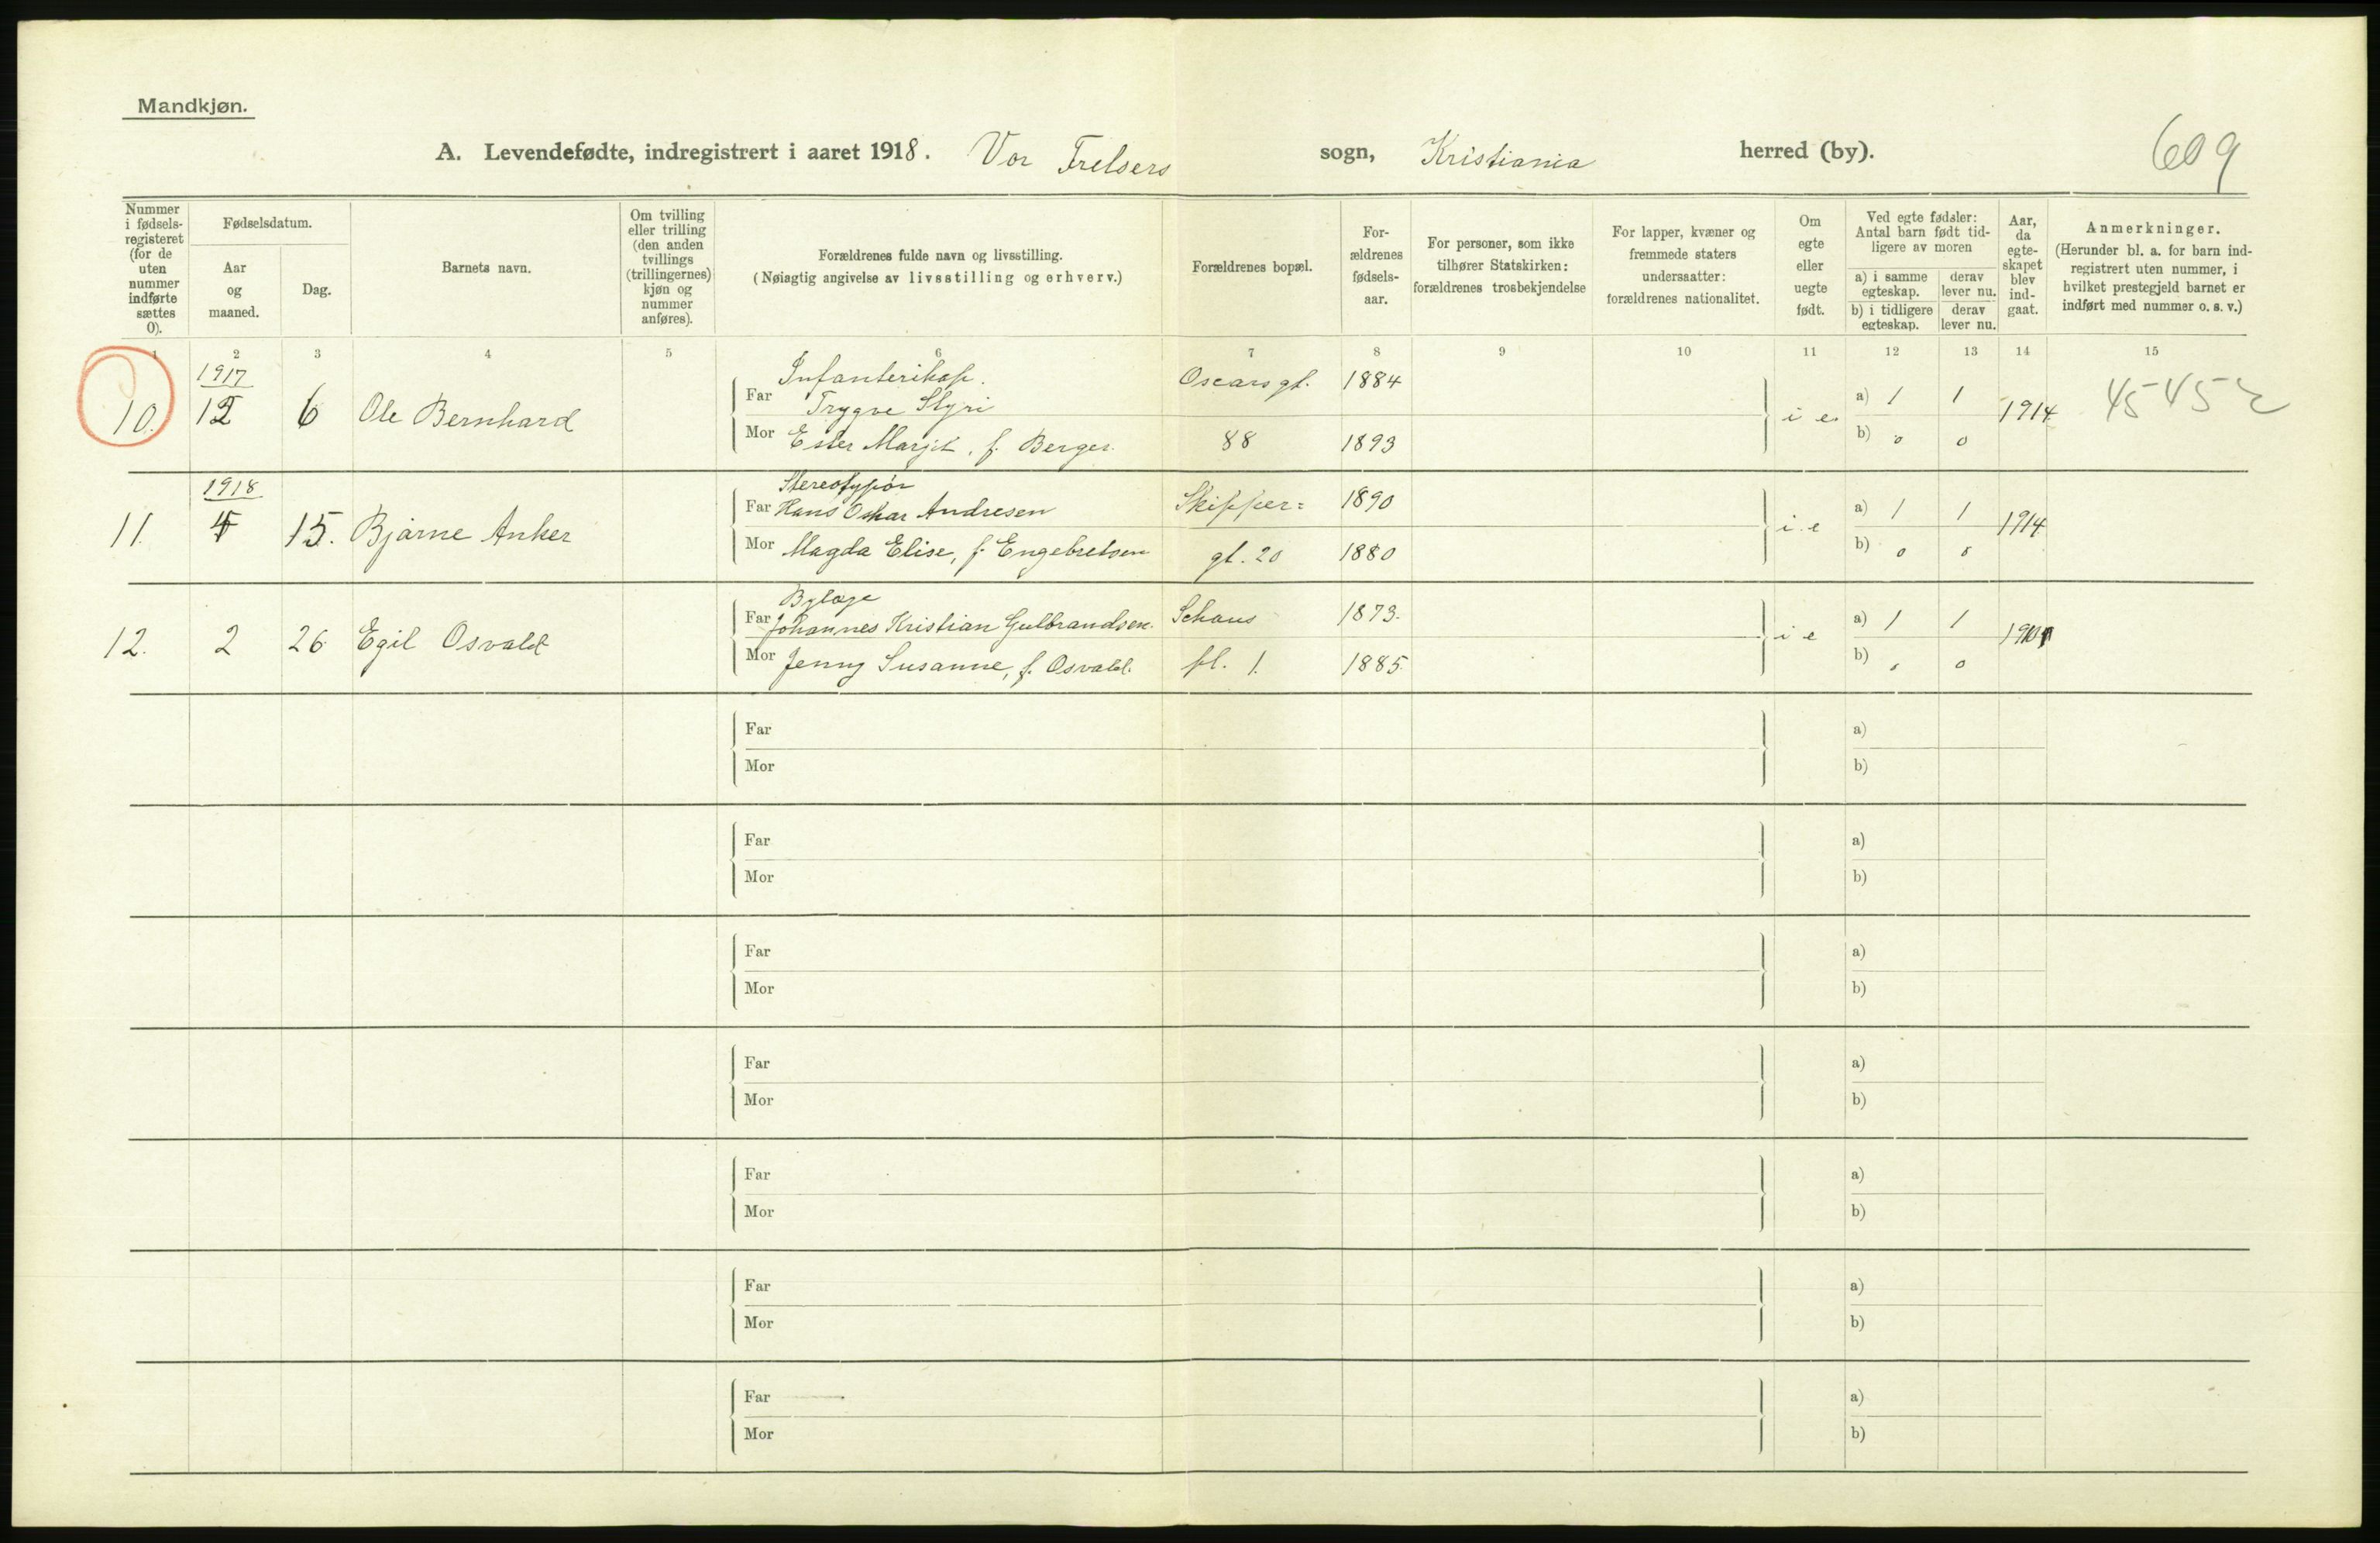 Mandkjøn.
A. Levendefødte, indregistrert i aaret 1918. Vor Frelsers sogn, Kristiania herred (by).
609
Nummer i fødsels-registeret (for de uten nummer indførte sættes 0).
Fødselsdatum.
Aar og maaned.
Dag.
Barnets navn.
Om tvilling eller trilling (den anden tvillings (trillingernes) kjøn og nummer anføres).
Forældrenes fulde navn og livsstilling.
(Nøiagtig angivelse av livsstilling og erhverv.)
Forældrenes bopæl.
For-ældrenes fødsels-aar.
For personer, som ikke tilhører Statskirken: forældrenes trosbekjendelse
For lapper, kvæner og fremmede staters undersaatter: forældrenes nationalitet.
Om egte eller uegte født.
Ved egte fødsler: Antal barn født tid-ligere av moren
a) i samme egteskap.
derav lever nu.
b) i tidligere egteskap.
derav lever nu.
Aar, da egte-skapet blev ind-gaat.
Anmerkninger.
(Herunder bl. a. for barn ind-registrert uten nummer, i hvilket prestegjeld barnet er indført med nummer o. s. v.)
1 2 3 4 5 6 7 8 9 10 11 12 13 14 15
1917 Infanterikap.
10. 12 6 Ole Bernhard Far Trygve Styri Oscarsgt. 1884 i e a) 1 1 1914
Mor Ester Marjit, f. Berger. 88 1893 b) 0 0
1918 Stereotypør
11. 4 15. Bjarne Anker Far Hans Oskar Andresen Skipper= 1890 i e a) 1 1 1914
Mor Magda Elise, f. Engebretsen gt. 20 1880 b) 0 0
12. 2 26 Egil Osvald Far Johannes Kristian Gulbrandsen. Schous 1873. i e a) 1 1
Mor Jenny Susanne, f. Osvald. pl. 1. 1885. b) 0 0
Far a)
Mor b)
Far a)
Mor b)
Far a)
Mor b)
Far a)
Mor b)
Far a)
Mor b)
Far a)
Mor b)
Far a)
Mor b)